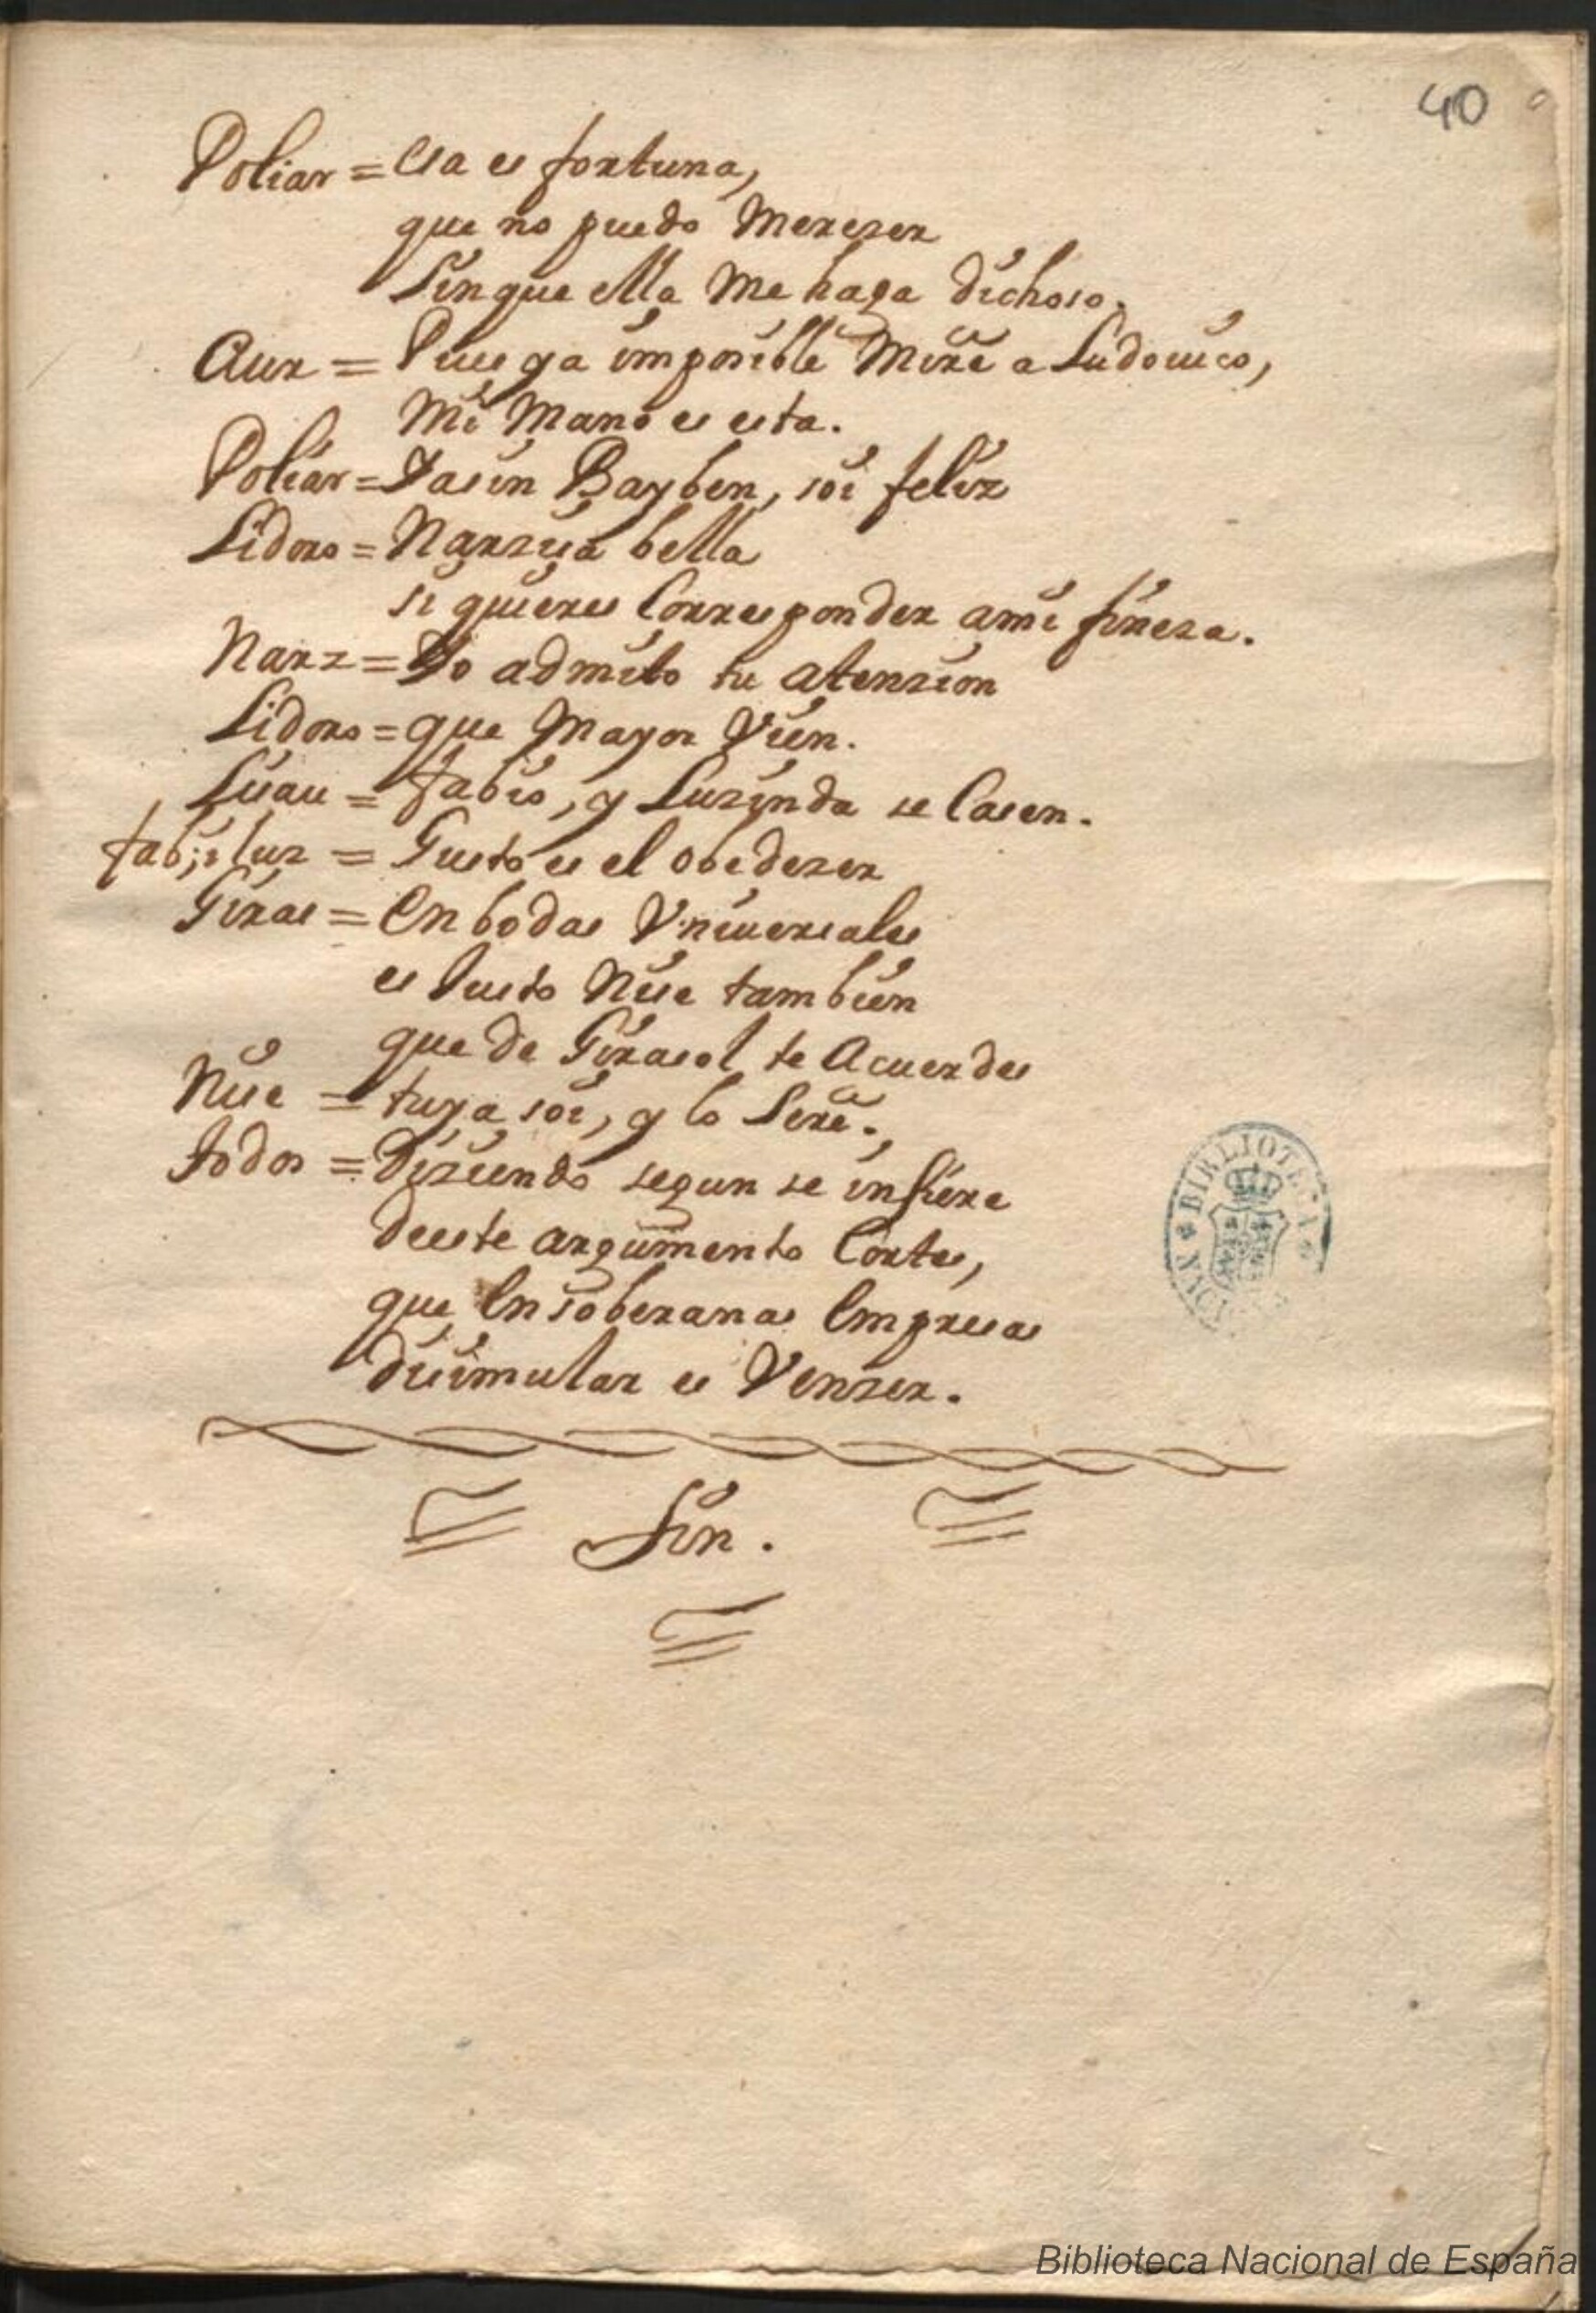 40
Poliar = esa es fortuna,
que no puedo Merezer
sinque ella Me haga dichoso.
Aur = Pues ya imposible Miré a Ludouico,
Mi Mano es esta.
Poliar = Iasin Bayben, soi feliz
Lidoro = Narzisa bella
si quieres Corresponder ami fineza.
Narz = Yo admito tu atenzion
Lidoro = que Mayor Vien.
Lisau = fabio, y Luzinda se Casen.
fab; i luz = Gusto es el obedezer
Giras = En bodas Vniuersales
es Justo Nise tambien
que de Girasol te Acuerdes
Nise = tuya soi, y lo Seré.
todos = Diziendo segun se infiere
deeste argumento Cortes,
que En soberanas Empresas
disimular es Venzer.
fin.
BIBLIOTECA
Biblioteca Nacional de España